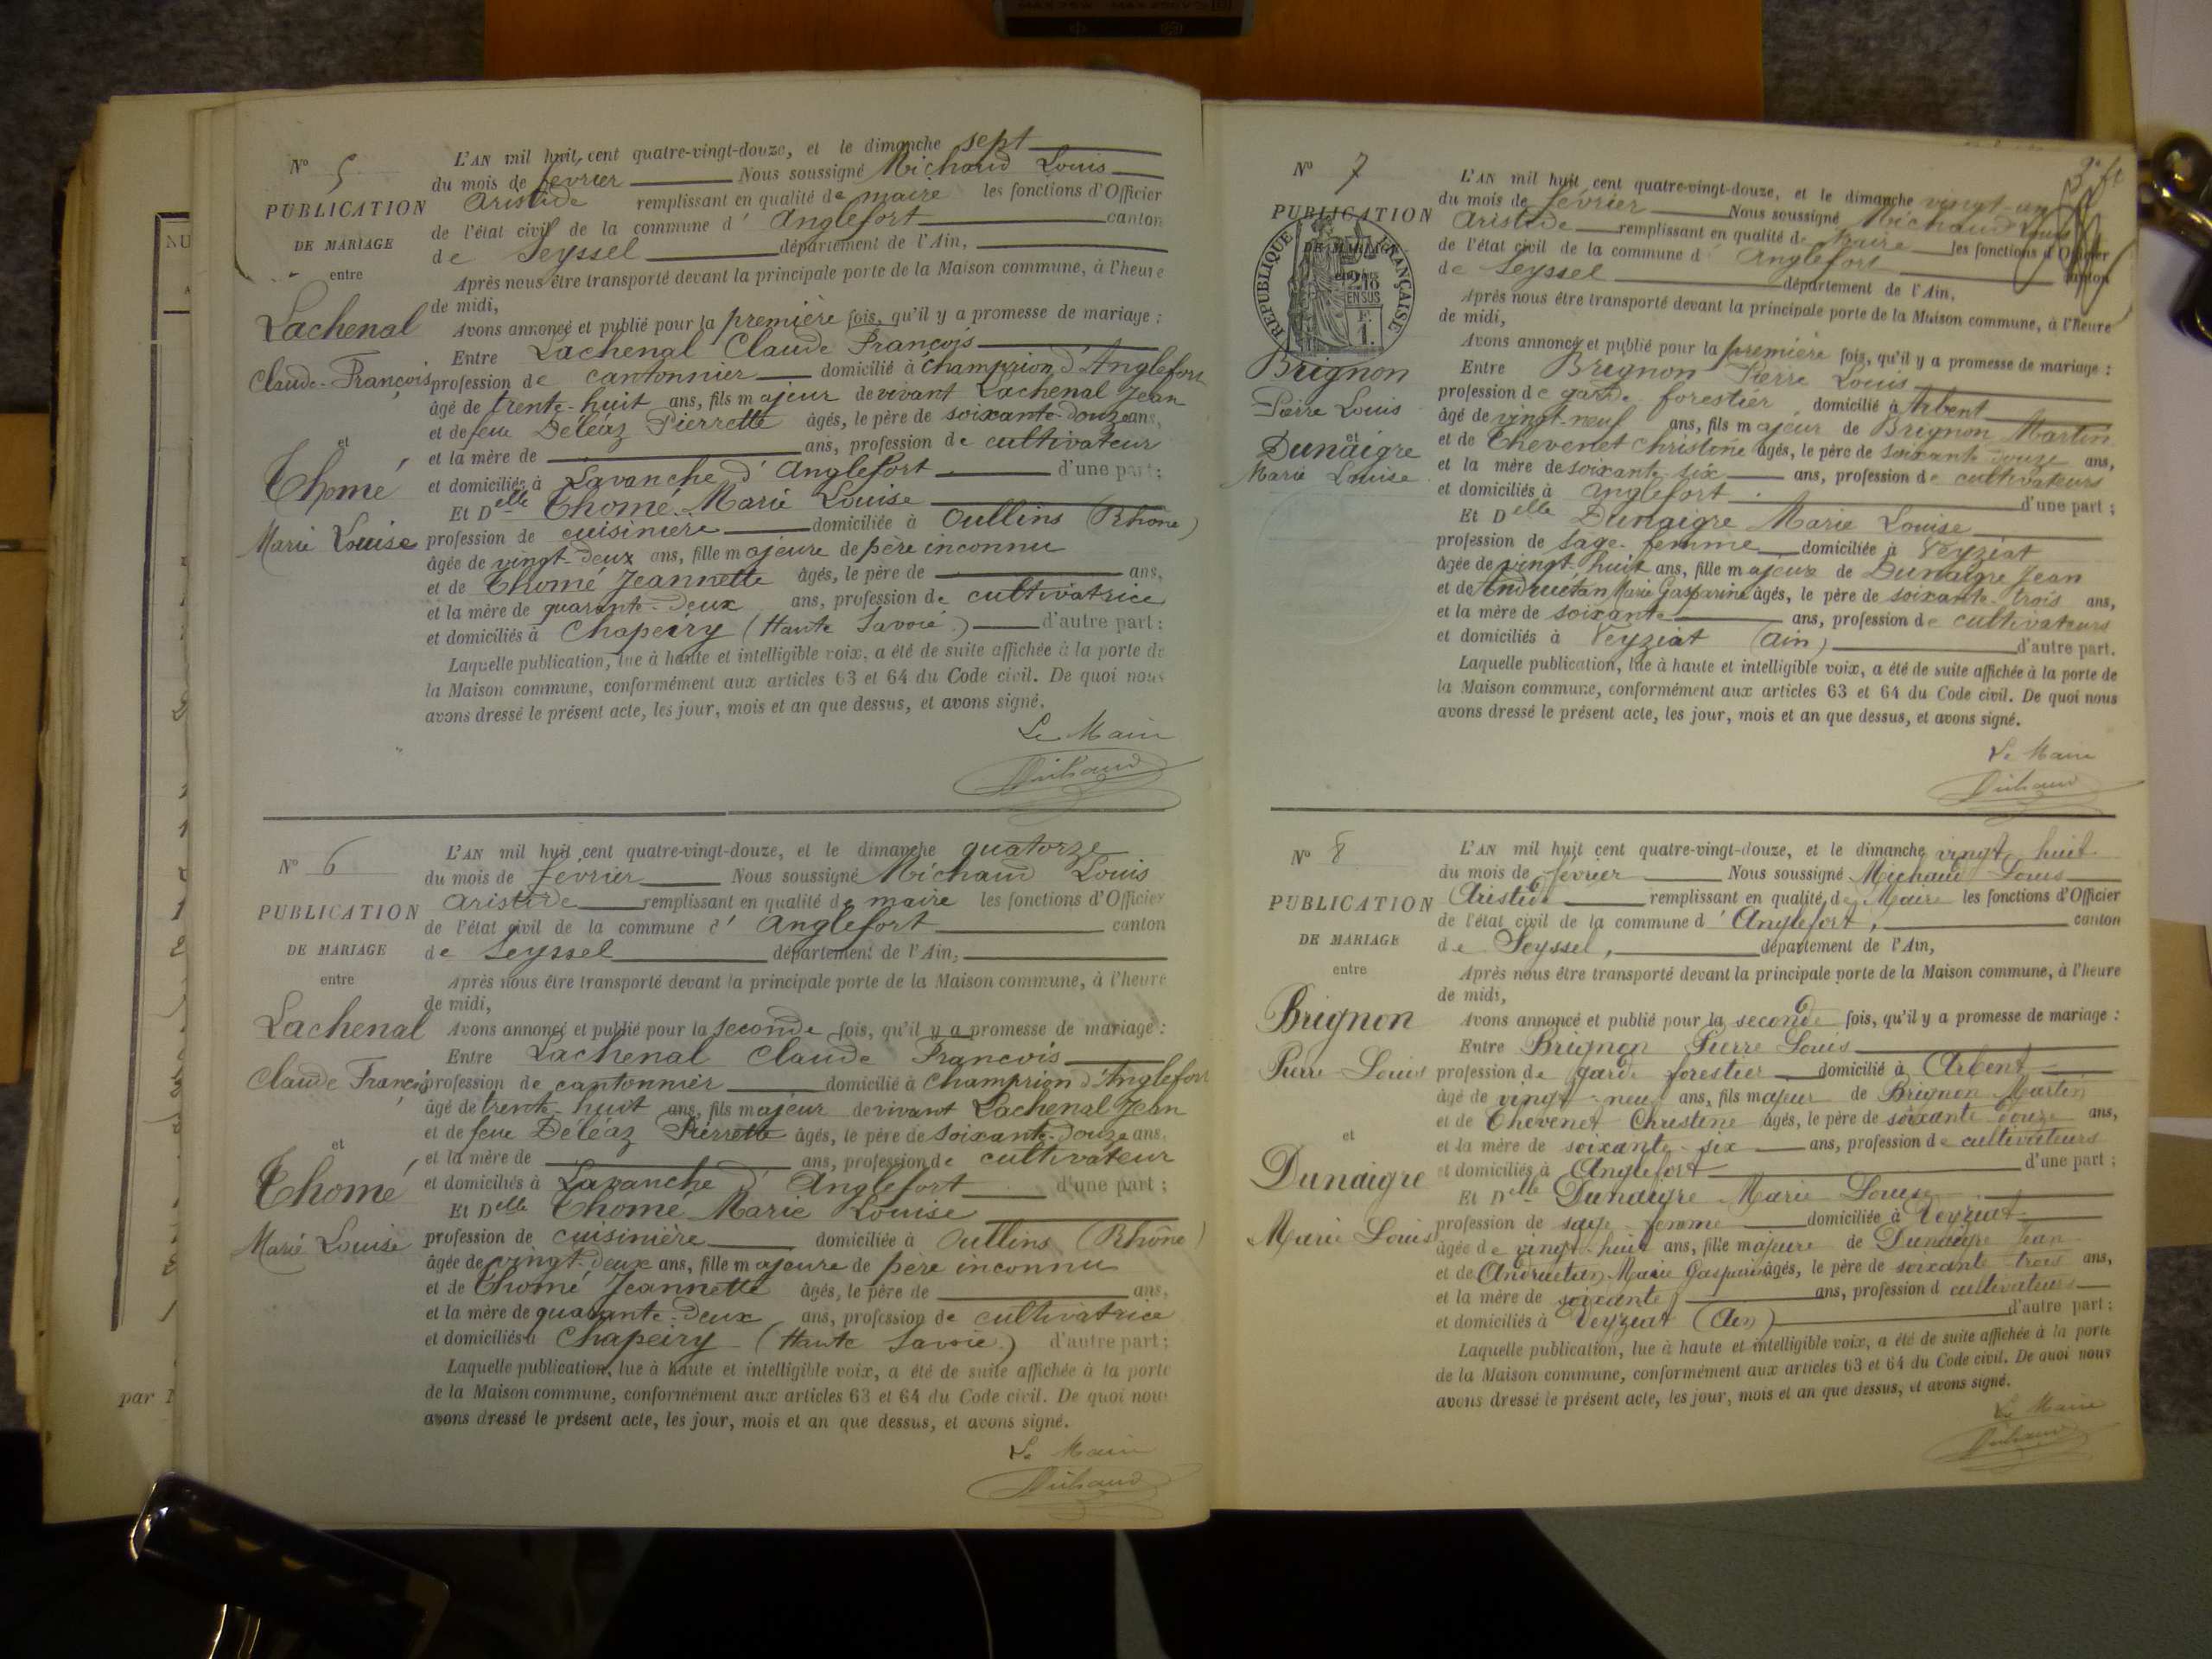 NU
par
N° 5
PUBLICATION
DE MARIAGE
entre
Lachenal
Claude-François
et
Thomé
Marie Louise
L'AN mil huit cent quatre-vingt-douze, et le dimanche sept
du mois de février Nous soussigné Michaud Louis
Aristide remplissant en qualité de maire les fonctions d'Officier
de l'état civil de la commune d' Anglefort canton
de Seyssel département de l'Ain,
Après nous être transporté devant la principale porte de la Maison commune, à l'heure
de midi,
Avons annoncé et publié pour la première fois, qu'il y a promesse de mariage :
Entre Lachenal Claude François
profession de cantonnier domicilié à Champrion d'Anglefort
âgé de trente-huit ans, fils majeur de vivant Lachenal Jean
et de feue Déléaz Pierrette âgés, le père de soixante-douze ans,
et la mère de ans, profession de cultivateur
et domiciliés à Lavanche d'Anglefort d'une part :
Et Delle Thomé Marie Louise
profession de cuisinière domiciliée à Oullins (Rhône)
âgée de vingt-deux ans, fille majeure de père inconnu
et de Thomé Jeannette âgés, le père de ans,
et la mère de quarante-deux ans, profession de cultivatrice
et domiciliés à Chapeiry (Haute Savoie) d'autre part :
Laquelle publication, lue à haute et intelligible voix, a été de suite affichée à la porte de
la Maison commune, conformément aux articles 63 et 64 du Code civil. De quoi nous
avons dressé le présent acte, les jour, mois et an que dessus, et avons signé.
Le Maire
Michaud
N° 6
PUBLICATION
DE MARIAGE
entre
Lachenal
Claude François
et
Thomé
Marie Louise
L'AN mil huit cent quatre-vingt-douze, et le dimanche quatorze
du mois de février Nous soussigné Michaud Louis
Aristide remplissant en qualité de maire les fonctions d'Officier
de l'état civil de la commune d' Anglefort canton
de Seyssel département de l'Ain,
Après nous être transporté devant la principale porte de la Maison commune, à l'heure
de midi,
Avons annoncé et publié pour la seconde fois, qu'il y a promesse de mariage :
Entre Lachenal Claude François
profession de cantonnier domicilié à Champrion d'Anglefort
âgé de trente-huit ans, fils majeur de vivant Lachenal Jean
et de feue Déléaz Pierrette âgés, le père de soixante-douze ans,
et la mère de ans, profession de cultivateur
et domiciliés à Lavanche d'Anglefort d'une part :
Et Delle Thomé Marie Louise
profession de cuisinière domiciliée à Oullins (Rhône)
âgée de vingt-deux ans, fille majeure de père inconnu
et de Thomé Jeannette âgés, le père de ans,
et la mère de quarante-deux ans, profession de cultivatrice
et domiciliés à Chapeiry (Haute Savoie) d'autre part :
Laquelle publication, lue à haute et intelligible voix, a été de suite affichée à la porte
de la Maison commune, conformément aux articles 63 et 64 du Code civil. De quoi nous
avons dressé le présent acte, les jour, mois et an que dessus, et avons signé.
Le Maire
Michaud
N° 7
PUBLICATION
DE MARIAGE
RÉPUBLIQUE FRANÇAISE
EN SUS
F.
1.
Brignon
Pierre Louis
et
Dunaigre
Marie Louise
L'AN mil huit cent quatre-vingt-douze, et le dimanche vingt-un
du mois de février Nous soussigné Michaud Louis
Aristide remplissant en qualité de Maire les fonctions d'Officier
de l'état civil de la commune d' Anglefort canton
de Seyssel département de l'Ain,
Après nous être transporté devant la principale porte de la Maison commune, à l'heure
de midi,
Avons annoncé et publié pour la première fois, qu'il y a promesse de mariage :
Entre Brignon Pierre Louis
profession de garde forestier domicilié à Arbent
âgé de vingt-neuf ans, fils majeur de Brignon Martin
et de Thevenet Christine âgés, le père de soixante douze ans,
et la mère de soixante-six ans, profession de cultivateurs
et domiciliés à Anglefort d'une part ;
Et Delle Dunaigre Marie Louise
profession de sage-femme domiciliée à Veyziat
âgée de vingt-huit ans, fille majeure de Dunaigre Jean
et de Andruétan Marie Gasparine âgés, le père de soixante-trois ans,
et la mère de soixante ans, profession de cultivateurs
et domiciliés à Veyziat (Ain) d'autre part.
Laquelle publication, lue à haute et intelligible voix, a été de suite affichée à la porte de
la Maison commune, conformément aux articles 63 et 64 du Code civil. De quoi nous
avons dressé le présent acte, les jour, mois et an que dessus, et avons signé.
Le Maire
Michaud
N° 8
PUBLICATION
DE MARIAGE
entre
Brignon
Pierre Louis
et
Dunaigre
Marie Louise
L'AN mil huit cent quatre-vingt-douze, et le dimanche vingt huit
du mois de février Nous soussigné Michaud Louis
Aristide remplissant en qualité de Maire les fonctions d'Officier
de l'état civil de la commune d' Anglefort, canton
de Seyssel, département de l'Ain,
Après nous être transporté devant la principale porte de la Maison commune, à l'heure
de midi,
Avons annoncé et publié pour la seconde fois, qu'il y a promesse de mariage :
Entre Brignon Pierre Louis
profession de garde forestier domicilié à Arbent
âgé de vingt-neuf ans, fils majeur de Brignon Martin
et de Thevenet Christine âgés, le père de soixante douze ans,
et la mère de soixante-six ans, profession de cultivateurs
et domiciliés à Anglefort d'une part ;
Et Delle Dunaigre Marie Louise
profession de sage-femme domiciliée à Veyziat
âgée de vingt-huit ans, fille majeure de Dunaigre Jean
et de Andruetan Marie Gasparine âgés, le père de soixante trois ans,
et la mère de soixante ans, profession d cultivateurs
et domiciliés à Veyziat (Ain) d'autre part ;
Laquelle publication, lue à haute et intelligible voix, a été de suite affichée à la porte
de la Maison commune, conformément aux articles 63 et 64 du Code civil. De quoi nous
avons dressé le présent acte, les jour, mois et an que dessus, et avons signé.
Le Maire
Michaud